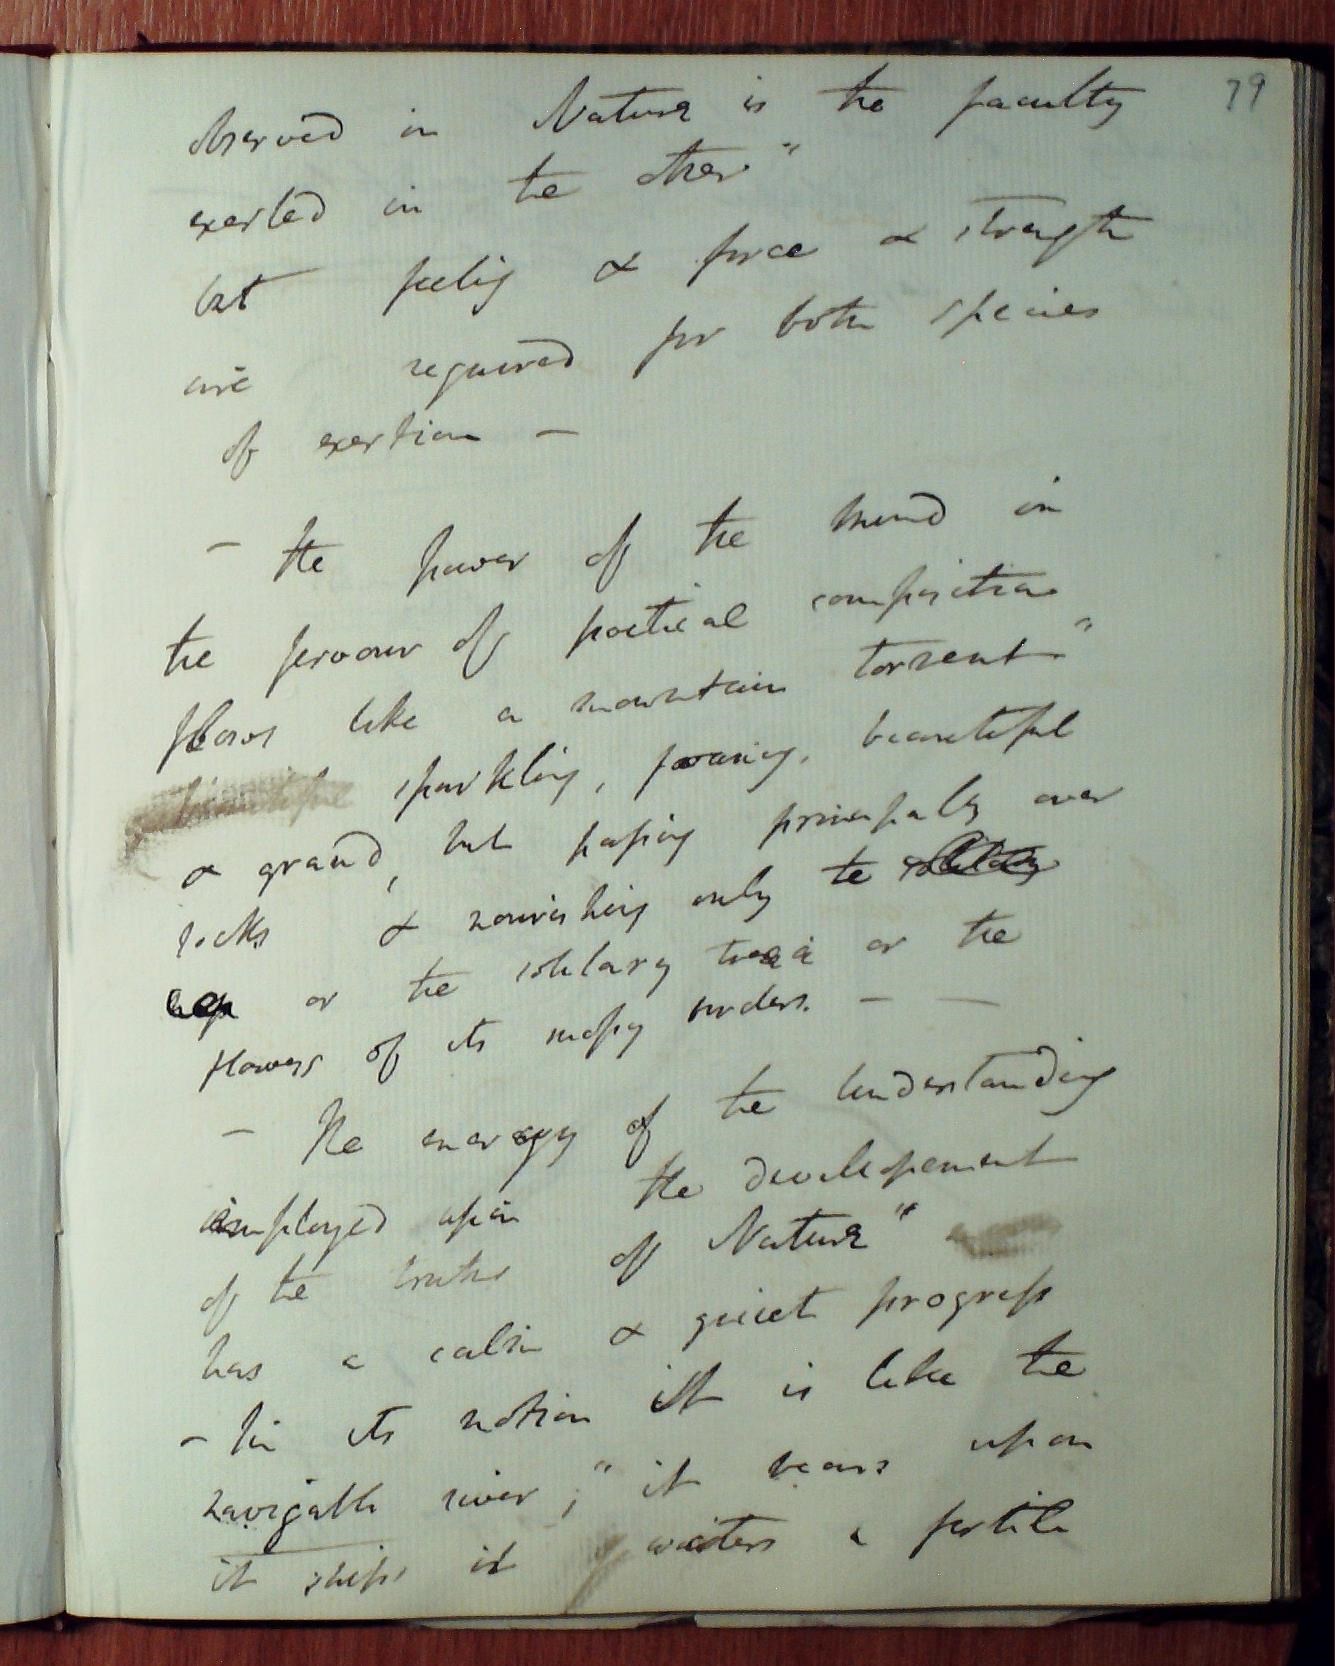 79
observed in Nature is the faculty
exerted in the other"
but feeling & force & strength
are required for both species
of exertion —
— The power of the mind in
the fervour of poetical composition
flows like a mountain torrent"
beautiful sparkling, foaming, beautiful
& grand, but passing principally over
rocks & nourishing only the solitary
or the solitary tree or the
flowers of its mossy borders. — —
— The energy of the Understanding
employed upon the developement
of the truths of Nature"
has a calm & quiet progress
– In its motion it is like the
navigable river; " it bears upon
it ships it waters a fertile